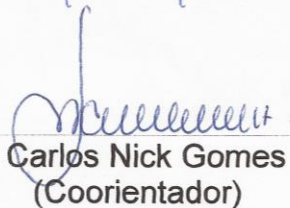 Carlos Nick Gomes
(Coorientador)